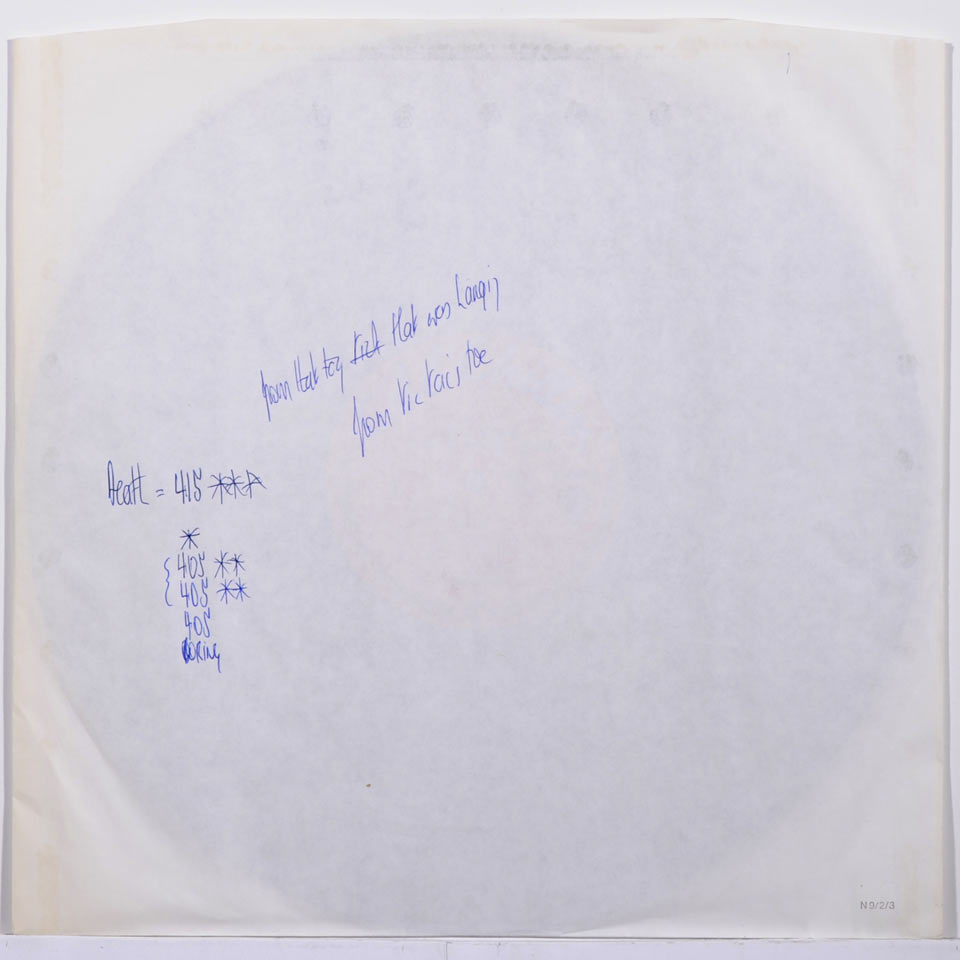 from that toy that was hangin
from Vic Vaci's toe
Death = 415 ***
*
{ 405 **
{ 405 **
405
BORING
N 9/2/3